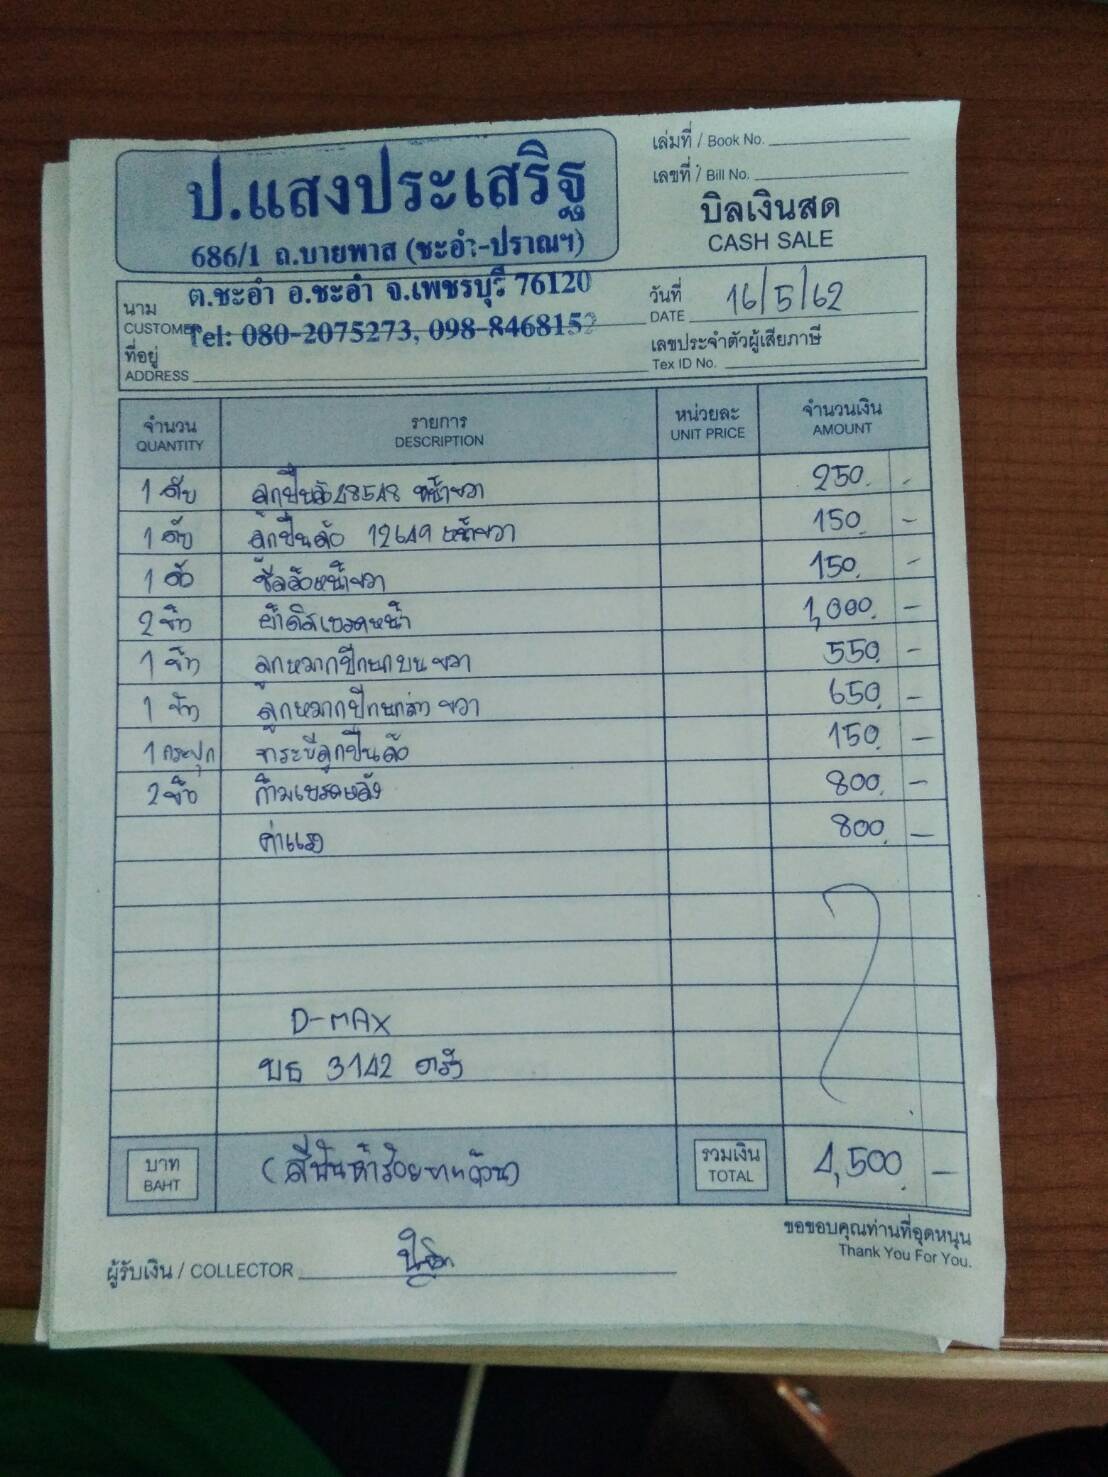 ป.แสงประเสริฐ
686/1 ถ.บายพาส (ชะอำ-ปราณฯ)
ต.ชะอำ อ.ชะอำ จ.เพชรบุรี 76120
Tel: 080-2075273, 098-8468152
เล่มที่ / Book No.
เลขที่ / Bill No.
บิลเงินสด
CASH SALE
นาม
CUSTOMER
ที่อยู่
ADDRESS
วันที่ 16/5/62
DATE
เลขประจำตัวผู้เสียภาษี
Tex ID No.
จำนวน รายการ หน่วยละ จำนวนเงิน
QUANTITY DESCRIPTION UNIT PRICE AMOUNT
1 ตับ ลูกปืนล้อ 48548 หน้าขวา 250.-
1 ตับ ลูกปืนล้อ 12649 หน้าขวา 150.-
1 ตัว ซีลล้อหน้าขวา 150.-
2 ชิ้น ผ้าดิสเบรคหน้า 1,000.-
1 ชิ้น ลูกหมากปีกนกบนขวา 550.-
1 ชิ้น ลูกหมากปีกนกล่างขวา 650.-
1 กระปุก จาระบีลูกปืนล้อ 150.-
2 ชิ้น ก้ามเบรคหลัง 800.-
ค่าแรง 800.-
D-MAX
บธ 3142 ตรัง
บาท (สี่พันห้าร้อยบาทถ้วน) รวมเงิน 4,500.-
BAHT TOTAL
ขอขอบคุณท่านที่อุดหนุน
Thank You For You.
ผู้รับเงิน / COLLECTOR